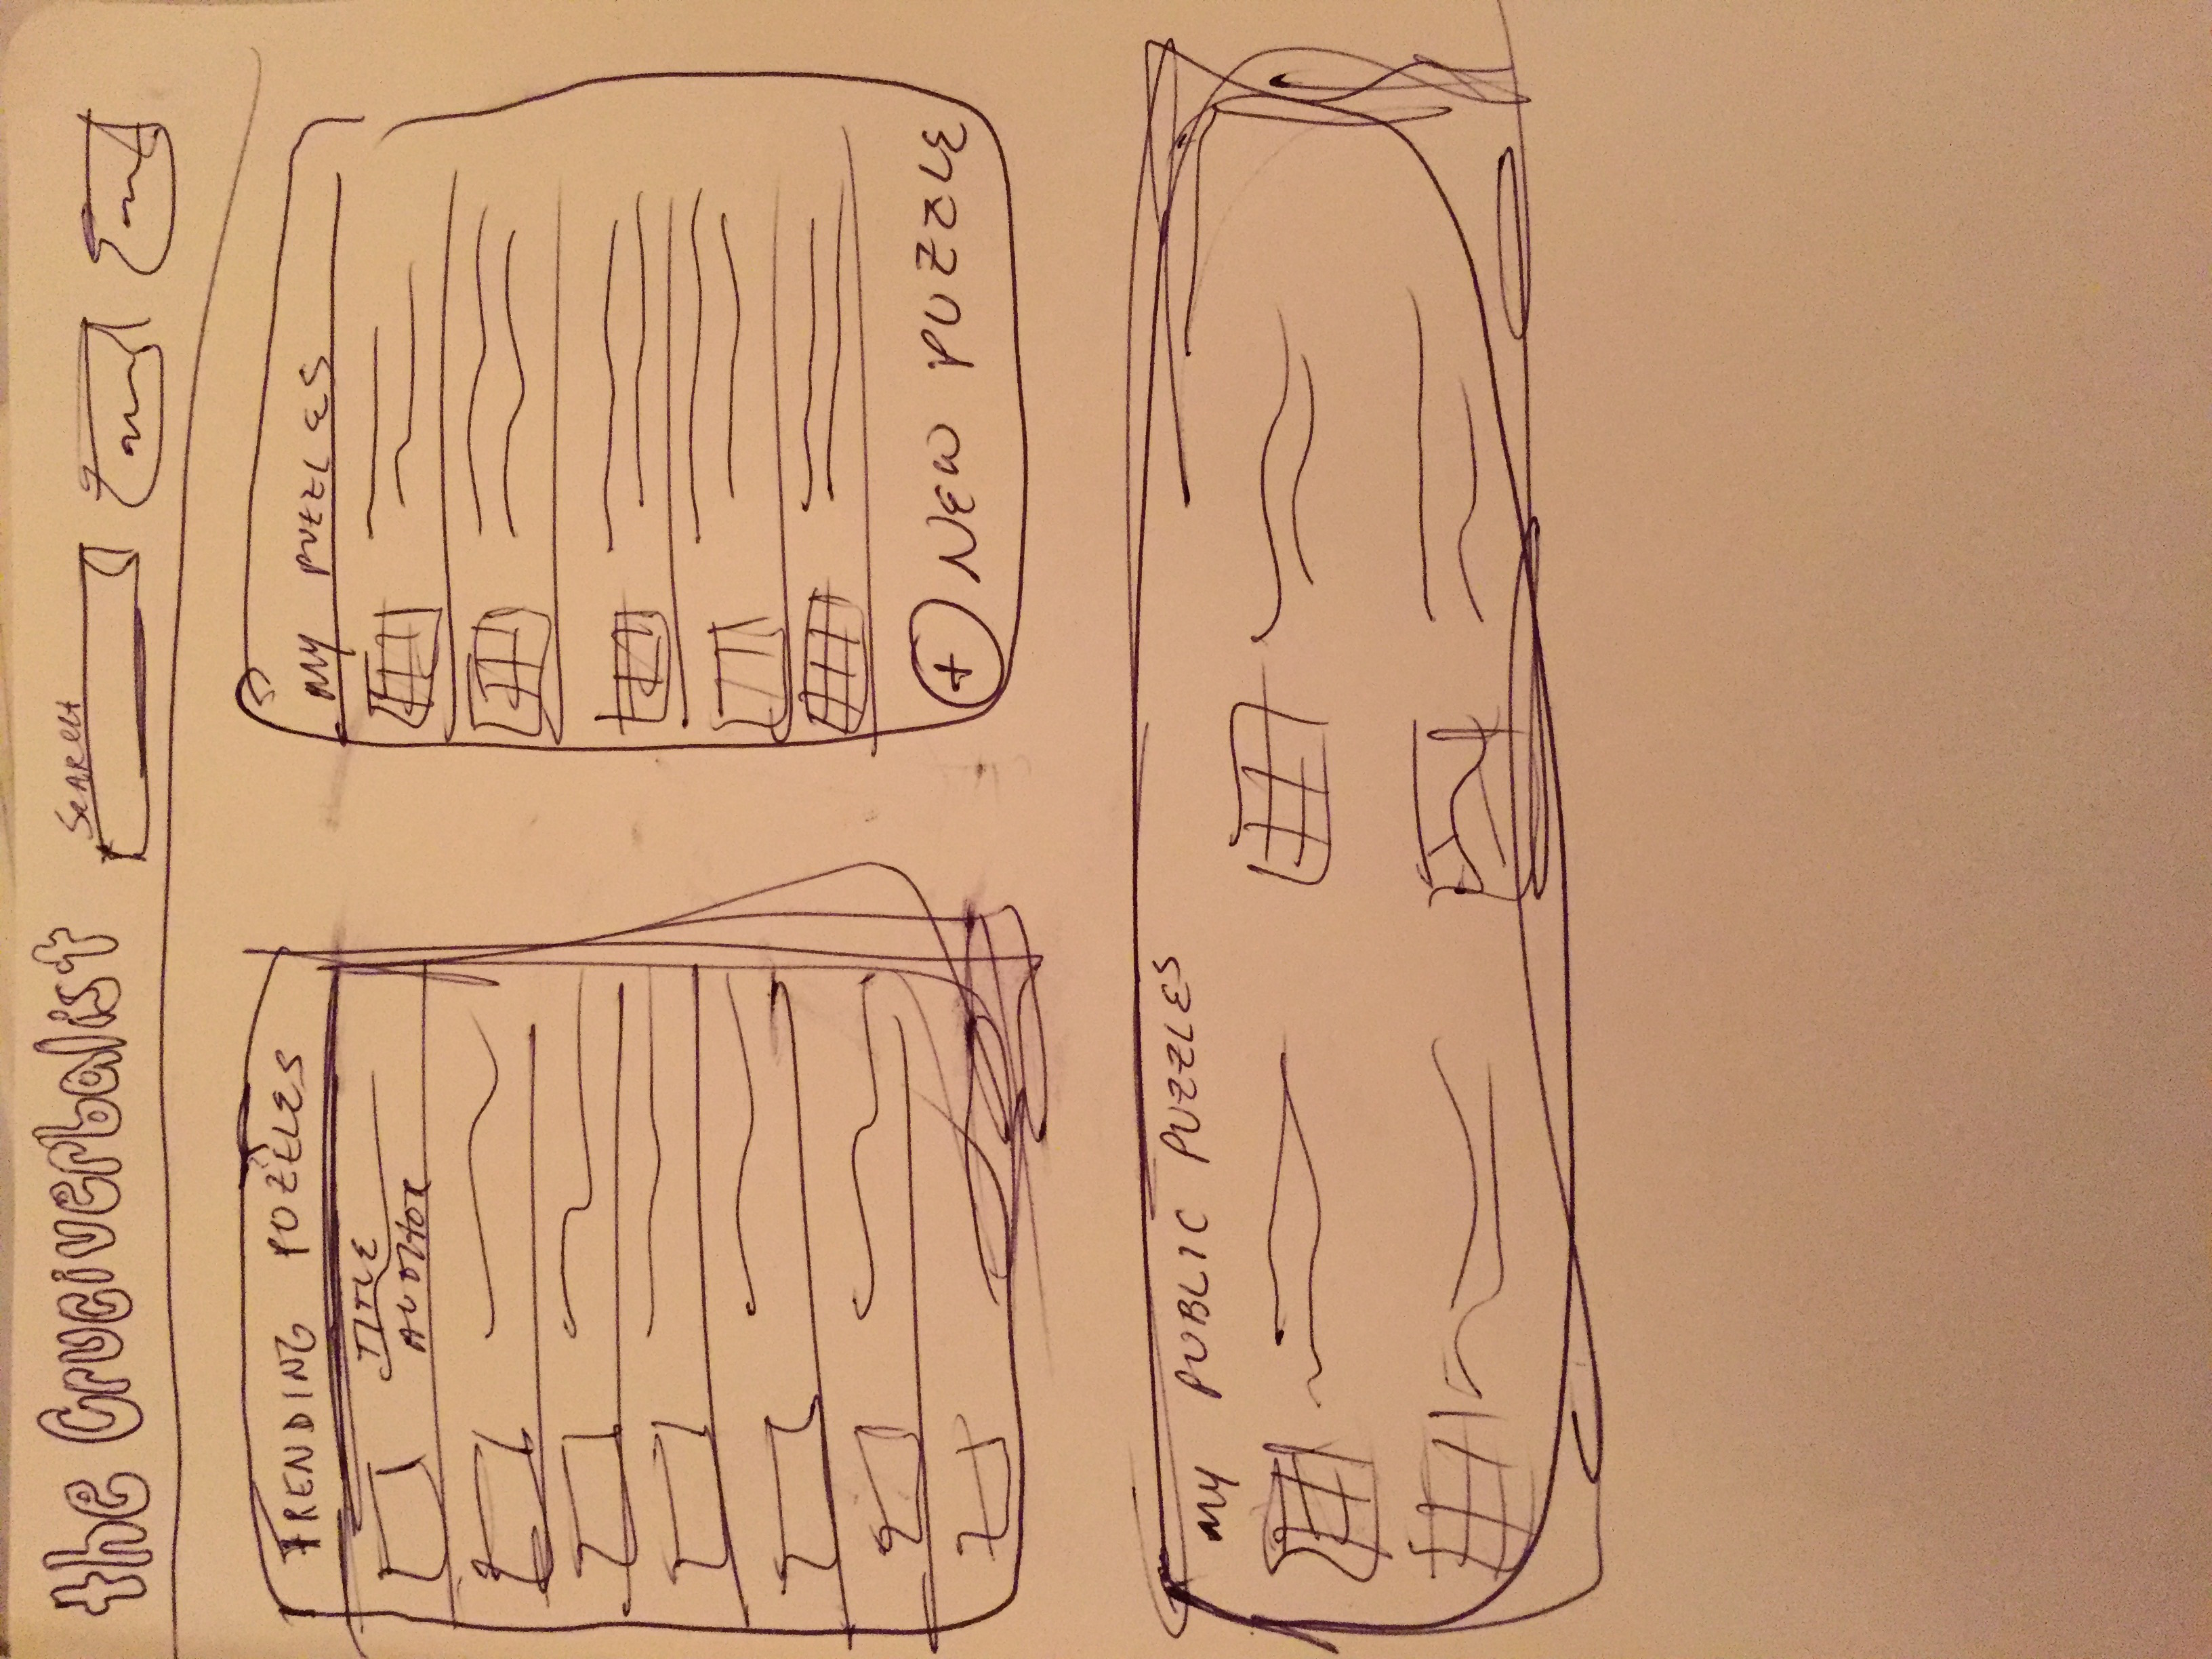 the Cruciverbalist
SEARCH
TRENDING PUZZLES
TITLE
AUTHOR
MY PUZZLES
+ NEW PUZZLE
MY PUBLIC PUZZLES